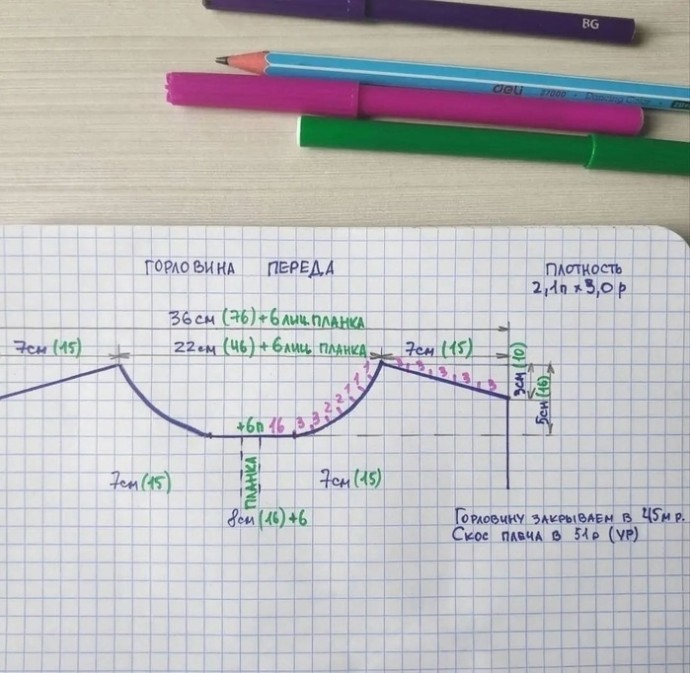 BG
deli
ГОРЛОВИНА ПЕРЕДА
ПЛОТНОСТЬ
2,1п × 3,0 р
36см (76) + 6 лиц ПЛАНКА
7см (15)
22см (46) + 6 лиц ПЛАНКА
7см (15)
3см (10)
5см (16)
3, 3, 3, 3, 3
+6п 16 3, 3, 2, 2, 1, 1, 1
7см (15)
ПЛАНКА
7см (15)
8см (16) + 6
ГОРЛОВИНУ ЗАКРЫВАЕМ В 45м р.
СКОС ПЛЕЧА В 51р (УР)